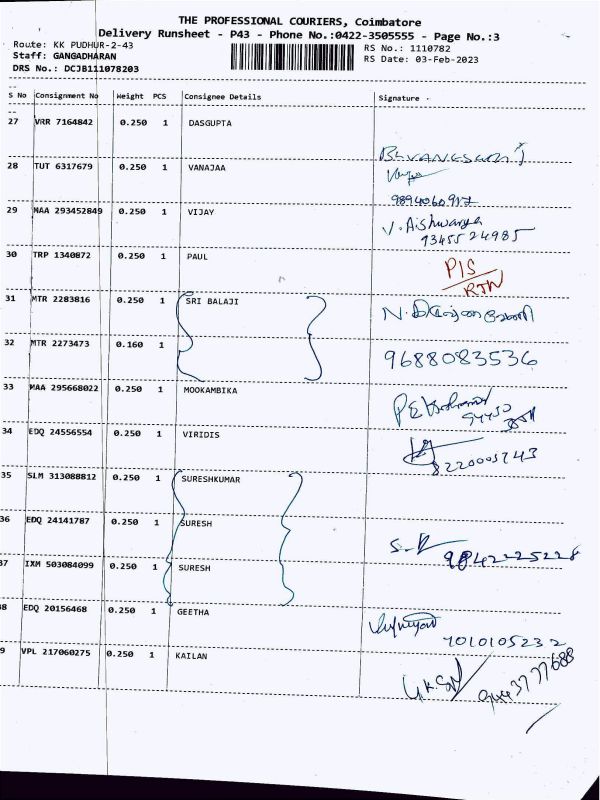 THE PROFESSIONAL COURIERS, Coimbatore
Delivery Runsheet - P43 - Phone No.:0422-3505555 - Page No.:3
Route: KK PUDHUR-2-43
RS No.: 1110782
Staff: GANGADHARAN
RS Date: 03-Feb-2023
DRS No.: DCJB111078203
S No Consignment No Weight PCS Consignee Details Signature
27 VRR 7164842 0.250 1 DASGUPTA
28 TUT 6317679 0.250 1 VANAJAA
9894060917
29 MAA 293452849 0.250 1 VIJAY
V. Aishwarya
9345524985
30 TRP 1340872 0.250 1 PAUL
P/S
RTN
31 MTR 2283816 0.250 1 SRI BALAJI
32 MTR 2273473 0.160 1
9688083536
33 MAA 295668022 0.250 1 MOOKAMBIKA
34 EDQ 24556554 0.250 1 VIRIDIS
8220005743
35 SLM 313088812 0.250 1 SURESHKUMAR
36 EDQ 24141787 0.250 1 SURESH
9842225228
37 IXM 503084099 0.250 1 SURESH
8 EDQ 20156468 0.250 1 GEETHA
7010105232
9 VPL 217060275 0.250 1 KAILAN